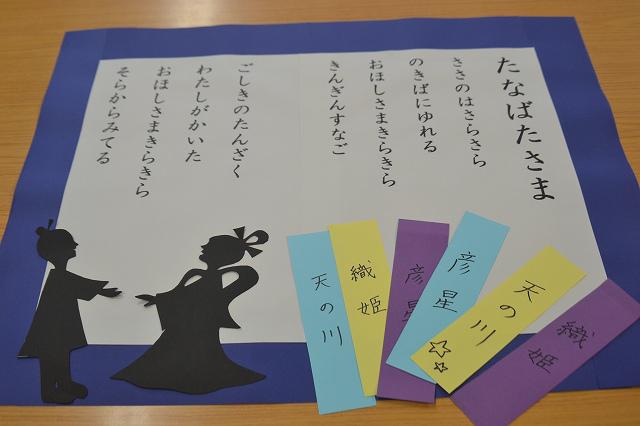 たなばたさま
ささのはさらさら
のきばにゆれる
おほしさまきらきら
きんぎんすなご
ごしきのたんざく
わたしがかいた
おほしさまきらきら
そらからみてる
天の川
織姫
彦星
彦星
天の川
織姫